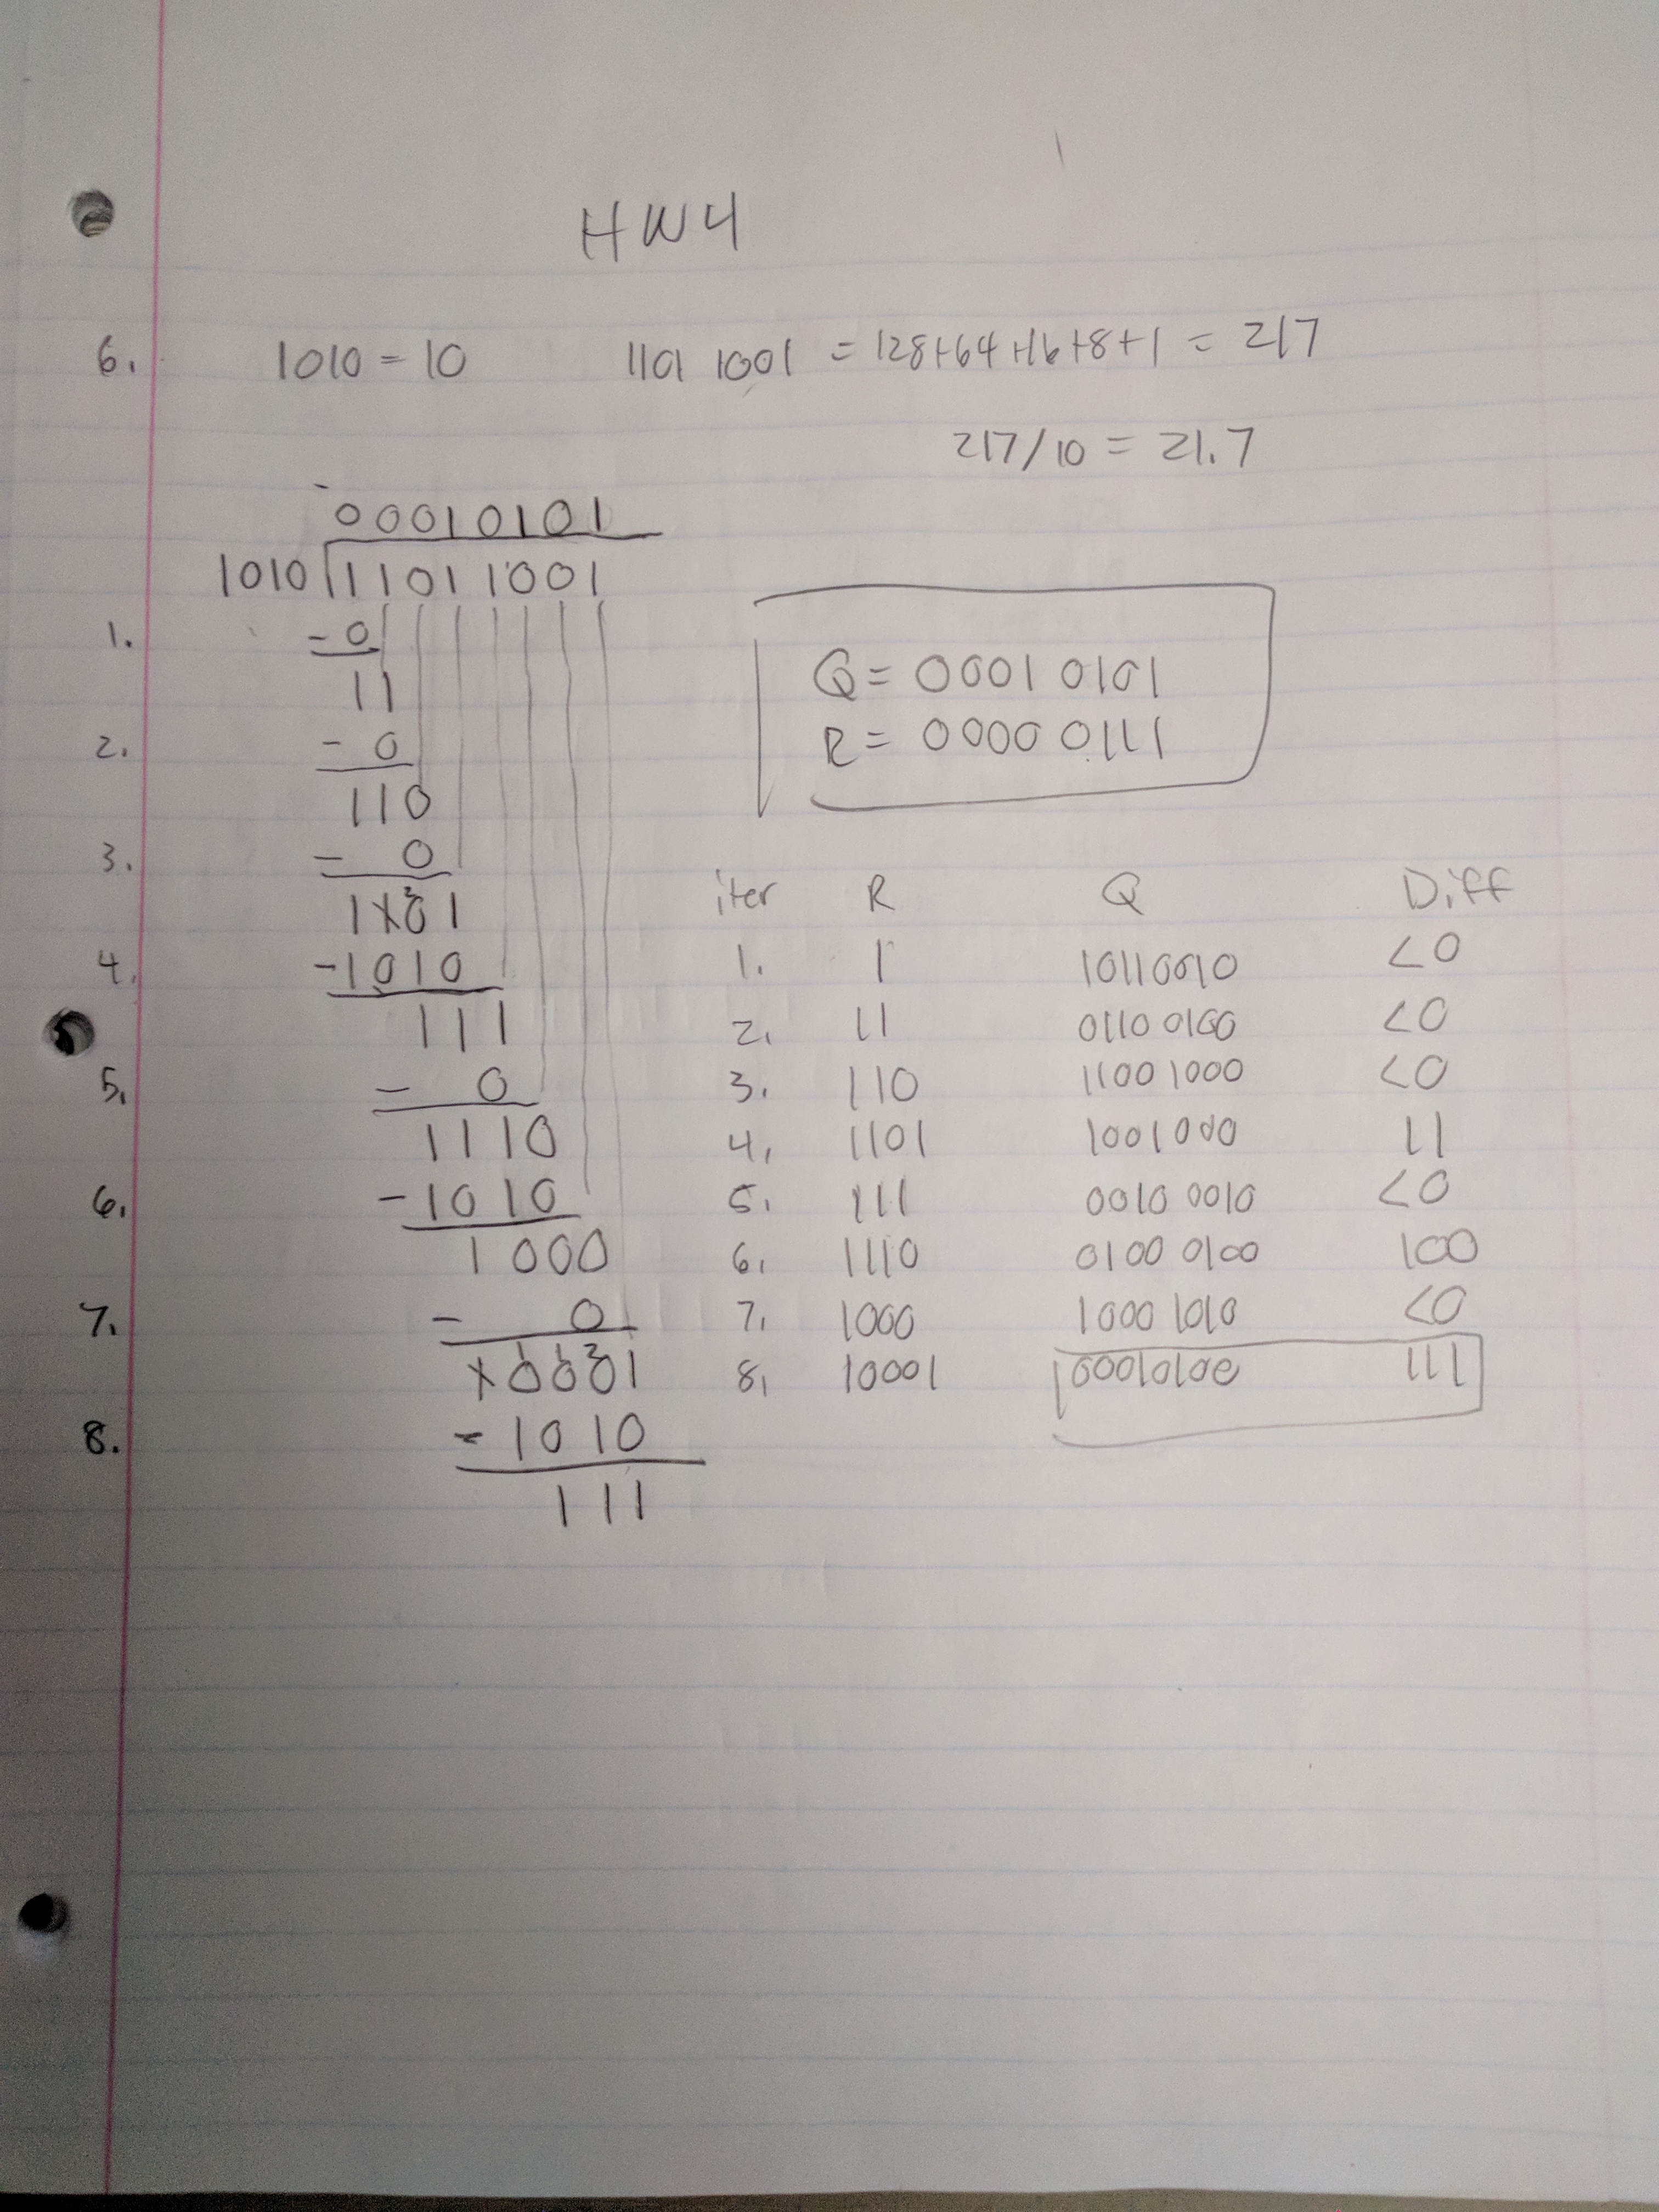 HW4
6. 1010 = 10 1101 1001 = 128+64+16+8+1 = 217
217/10 = 21.7
00010101
1010 11011001
1. - 0
11
2. - 0
110
3. - 0
1101
4. -1010
111
5. - 0
1110
6. -1010
1000
7. - 0
10001
8. -1010
111
Q = 0001 0101
R = 0000 0111
iter R Q Diff
1. 1 10110010 <0
2. 11 0110 0100 <0
3. 110 1100 1000 <0
4. 1101 1001 000 11
5. 111 0010 0010 <0
6. 1110 0100 0100 100
7. 1000 1000 1010 <0
8. 10001 00010100 111